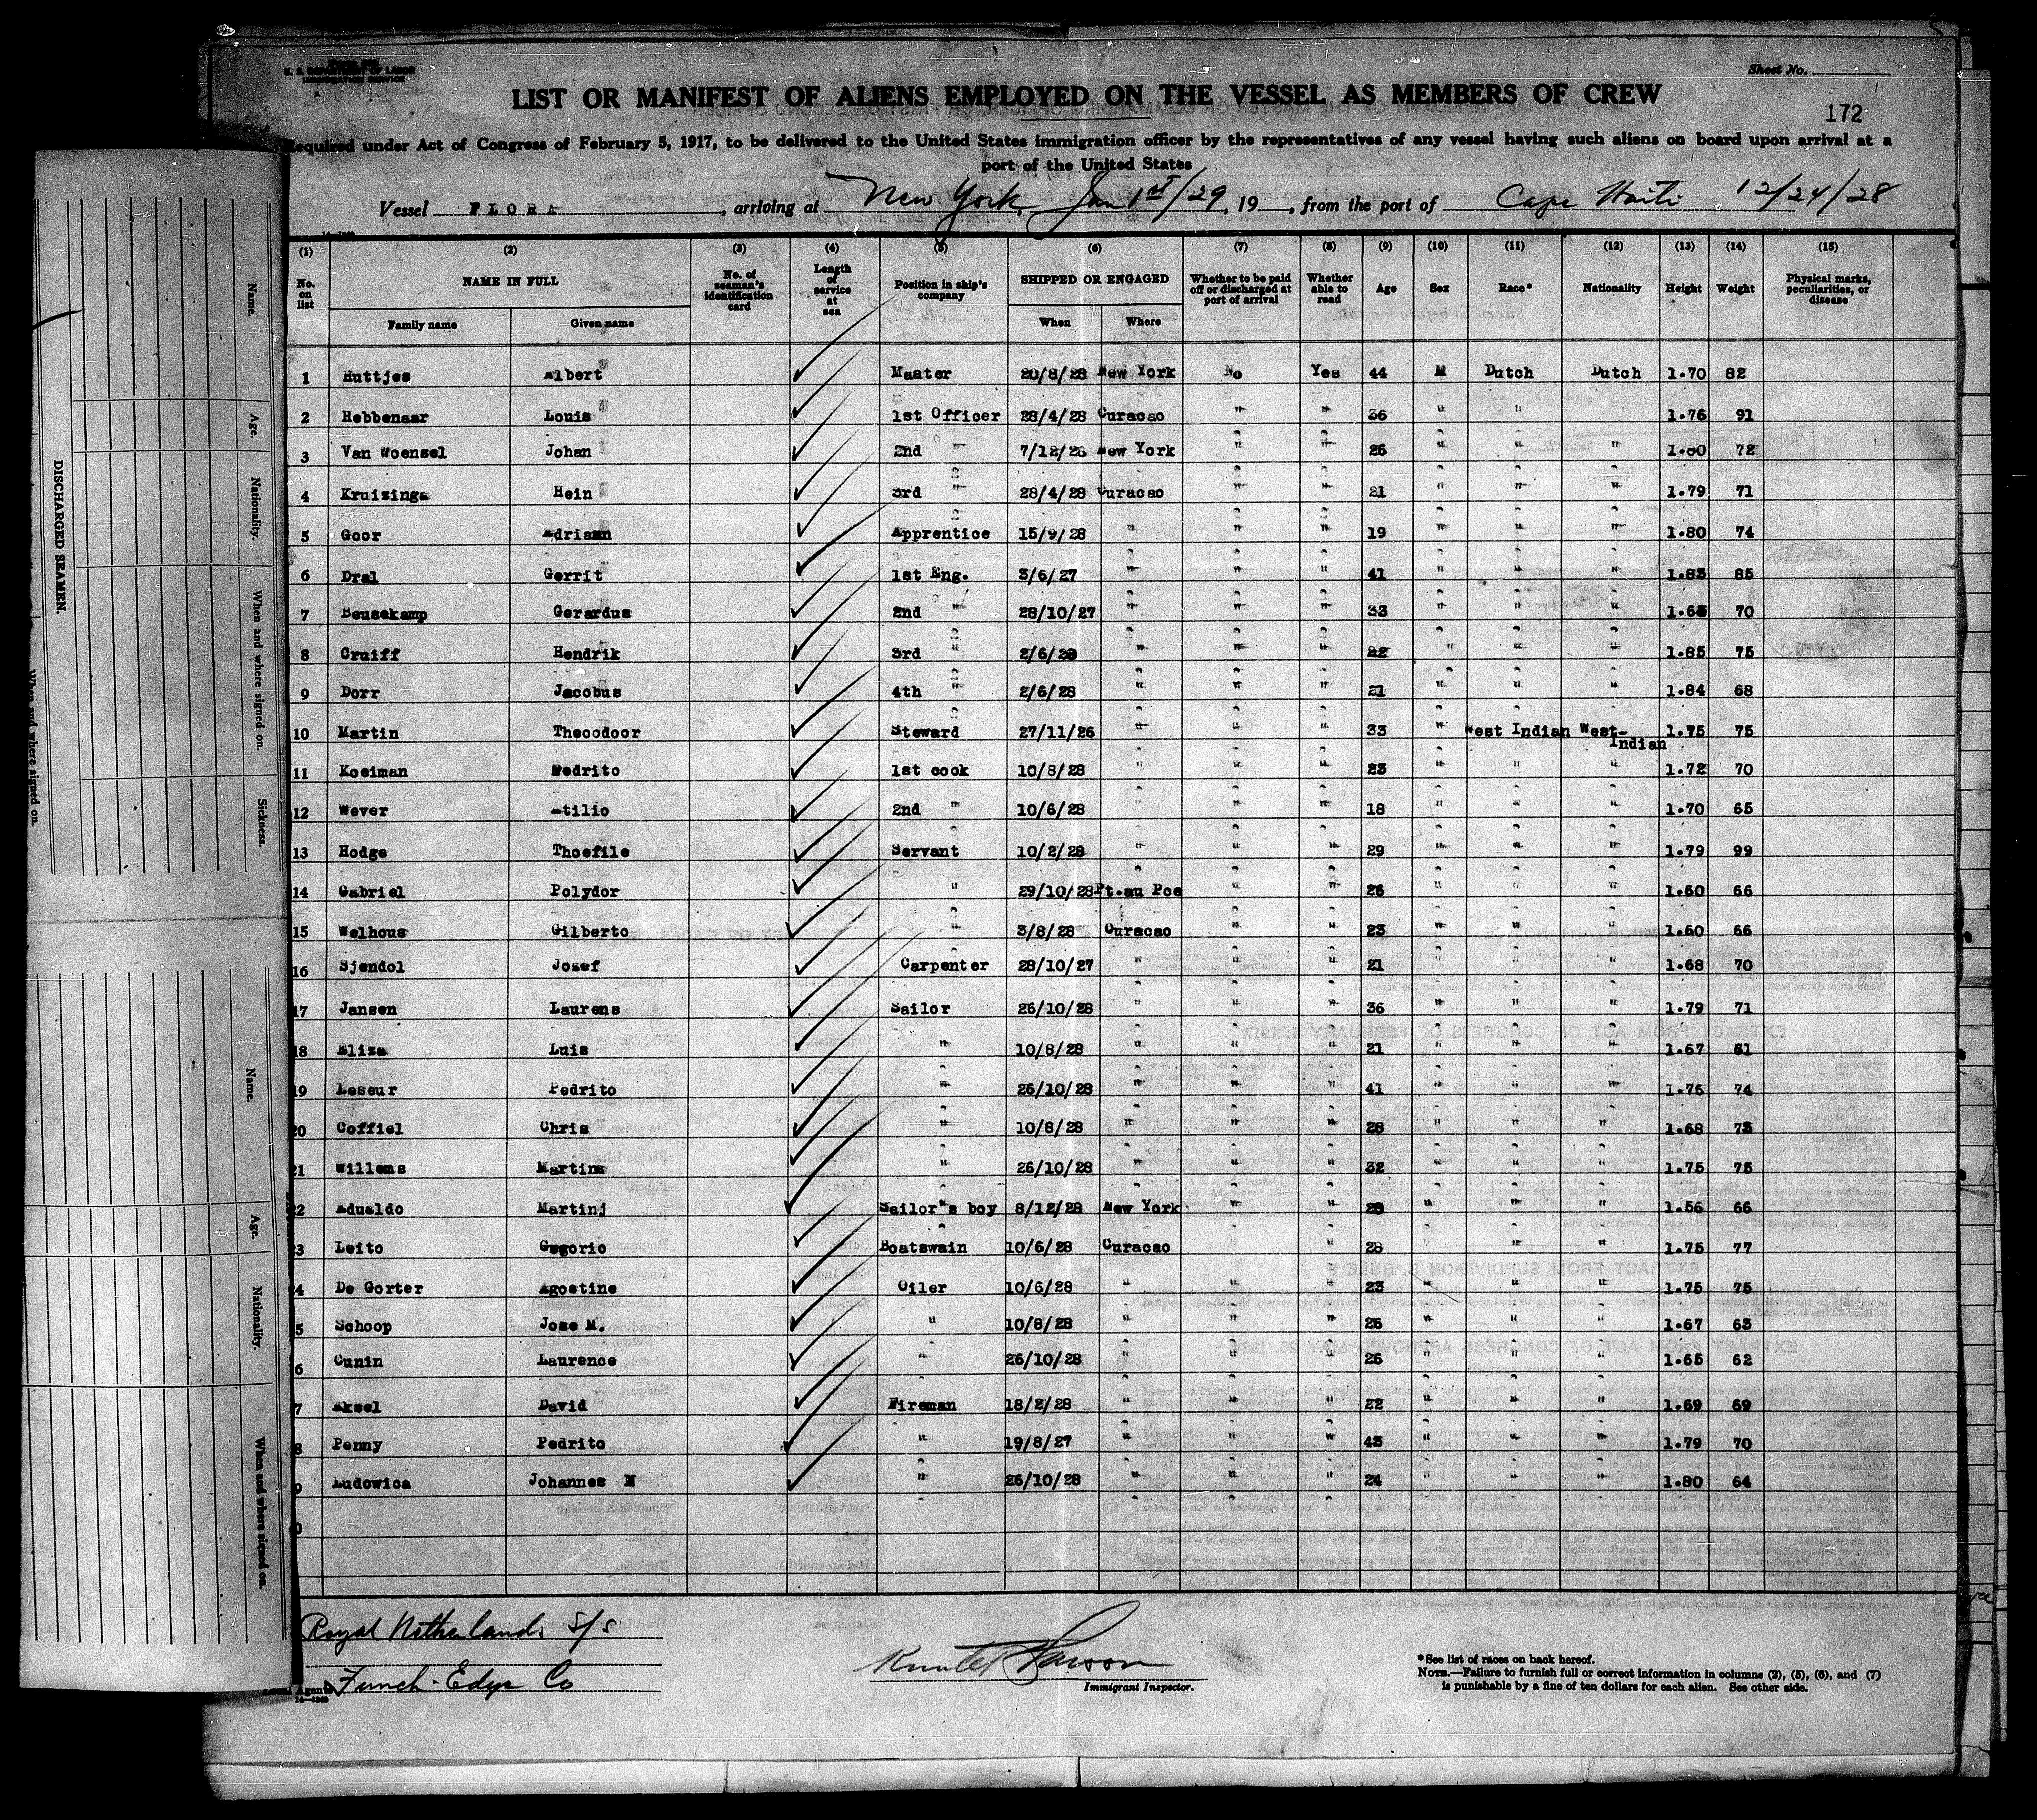 U. S. DEPARTMENT OF LABOR
IMMIGRATION SERVICE
Sheet No.
LIST OR MANIFEST OF ALIENS EMPLOYED ON THE VESSEL AS MEMBERS OF CREW
172
Required under Act of Congress of February 5, 1917, to be delivered to the United States immigration officer by the representatives of any vessel having such aliens on board upon arrival at a
port of the United States
Vessel FLORA, arriving at New York Jan 1st/29, 19 , from the port of Cape Haiti 12/24/28
(1) (2) (3) (4) (5) (6) (7) (8) (9) (10) (11) (12) (13) (14) (15)
No. on list NAME IN FULL Family name Given name No. of seaman's identification card Length of service at sea Position in ship's company SHIPPED OR ENGAGED When Where Whether to be paid off or discharged at port of arrival Whether able to read Age Sex Race* Nationality Height Weight Physical marks, peculiarities, or disease
1 Huttjes Albert Master 20/8/28 New York No Yes 44 M Dutch Dutch 1.70 82
2 Hebbenaar Louis 1st Officer 28/4/28 Curacao " " 36 " " 1.76 91
3 Van Woensel Johan 2nd " 7/12/28 New York " " 26 " " " 72
4 Kruizinga Hein 3rd " 28/4/28 Curacao " " 21 " " " 1.79 71
5 Goor Adriaan Apprentice 15/9/28 " " " 19 " " " 1.80 74
6 Dral Gerrit 1st Eng. 3/6/27 " " " 41 " " " 1.83 85
7 Beusekamp Gerardus 2nd " 28/10/27 " " " 33 " " " 70
8 Cruiff Hendrik 3rd " 2/6/28 " " " 22 " " " 1.85 75
9 Dorr Jacobus 4th " 2/6/28 " " " 21 " " " 1.84 68
10 Martin Theoodoor Steward 27/11/26 " " " 33 " West Indian West-Indian 1.75 75
11 Koeiman Pedrito 1st cook 10/8/28 " " " 23 " " " 1.72 70
12 Wever Atilio 2nd " 10/6/28 " " " 18 " " " 1.70 65
13 Hodge Thoefile Servant 10/2/28 " " " 29 " " " 1.79 99
14 Gabriel Polydor " 29/10/28 Pt.au Pce " " 26 " " " 1.60 66
15 Welhous Gilberto " 3/8/28 Curacao " " 23 " " " 1.60 66
16 Sjendol Josef Carpenter 28/10/27 " " " 21 " " " 1.68 70
17 Jansen Laurens Sailor 26/10/28 " " " 36 " " " 1.79 71
18 Eliza Luis " 10/8/28 " " " 21 " " " 1.67
19 Leseur Pedrito " 26/10/28 " " " 41 " " " 1.75 74
20 Coffiel Chris " 10/8/28 " " " 28 " " " 1.68 73
21 Willems Martins " 26/10/28 " " " 32 " " " 1.75 75
22 Adualdo Martinj Sailor"s boy 8/12/28 New York " " " " " 1.56 66
23 Leito Gegorio Boatswain 10/6/28 Curacao " " 28 " " " 1.75 77
4 De Gorter Agostine Oiler 10/6/28 " " " 23 " " " 1.75 75
5 Schoop Jose M. " 10/8/28 " " " 26 " " " 1.67 63
6 Cunin Laurence " 26/10/28 " " " 26 " " " 1.65 62
7 Aksel David Fireman 18/2/28 " " " 22 " " " 1.69 69
8 Penny Pedrito " 19/8/27 " " " 43 " " " 1.79 70
9 Ludowica Johannes M " 26/10/28 " " " 24 " " " 1.80 64
0
Royal Netherlands S/S
Funch-Edye Co
Agents
14—1240
Immigrant Inspector.
*See list of races on back hereof.
NOTE.—Failure to furnish full or correct information in columns (2), (5), (6), and (7)
is punishable by a fine of ten dollars for each alien. See other side.
DISCHARGED SEAMEN.
Name.
Age.
Nationality.
When and where signed on.
Sickness.
When and where signed on.
Name.
Age.
Nationality.
When and where signed on.